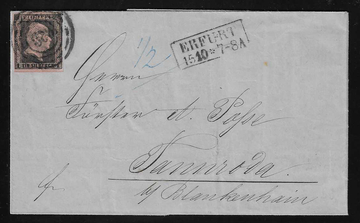 1/2
ERFURT
15 10 * 7-8A
Herrn
Förster A. Posse
Tannroda
b/ Blankenhain
fr.